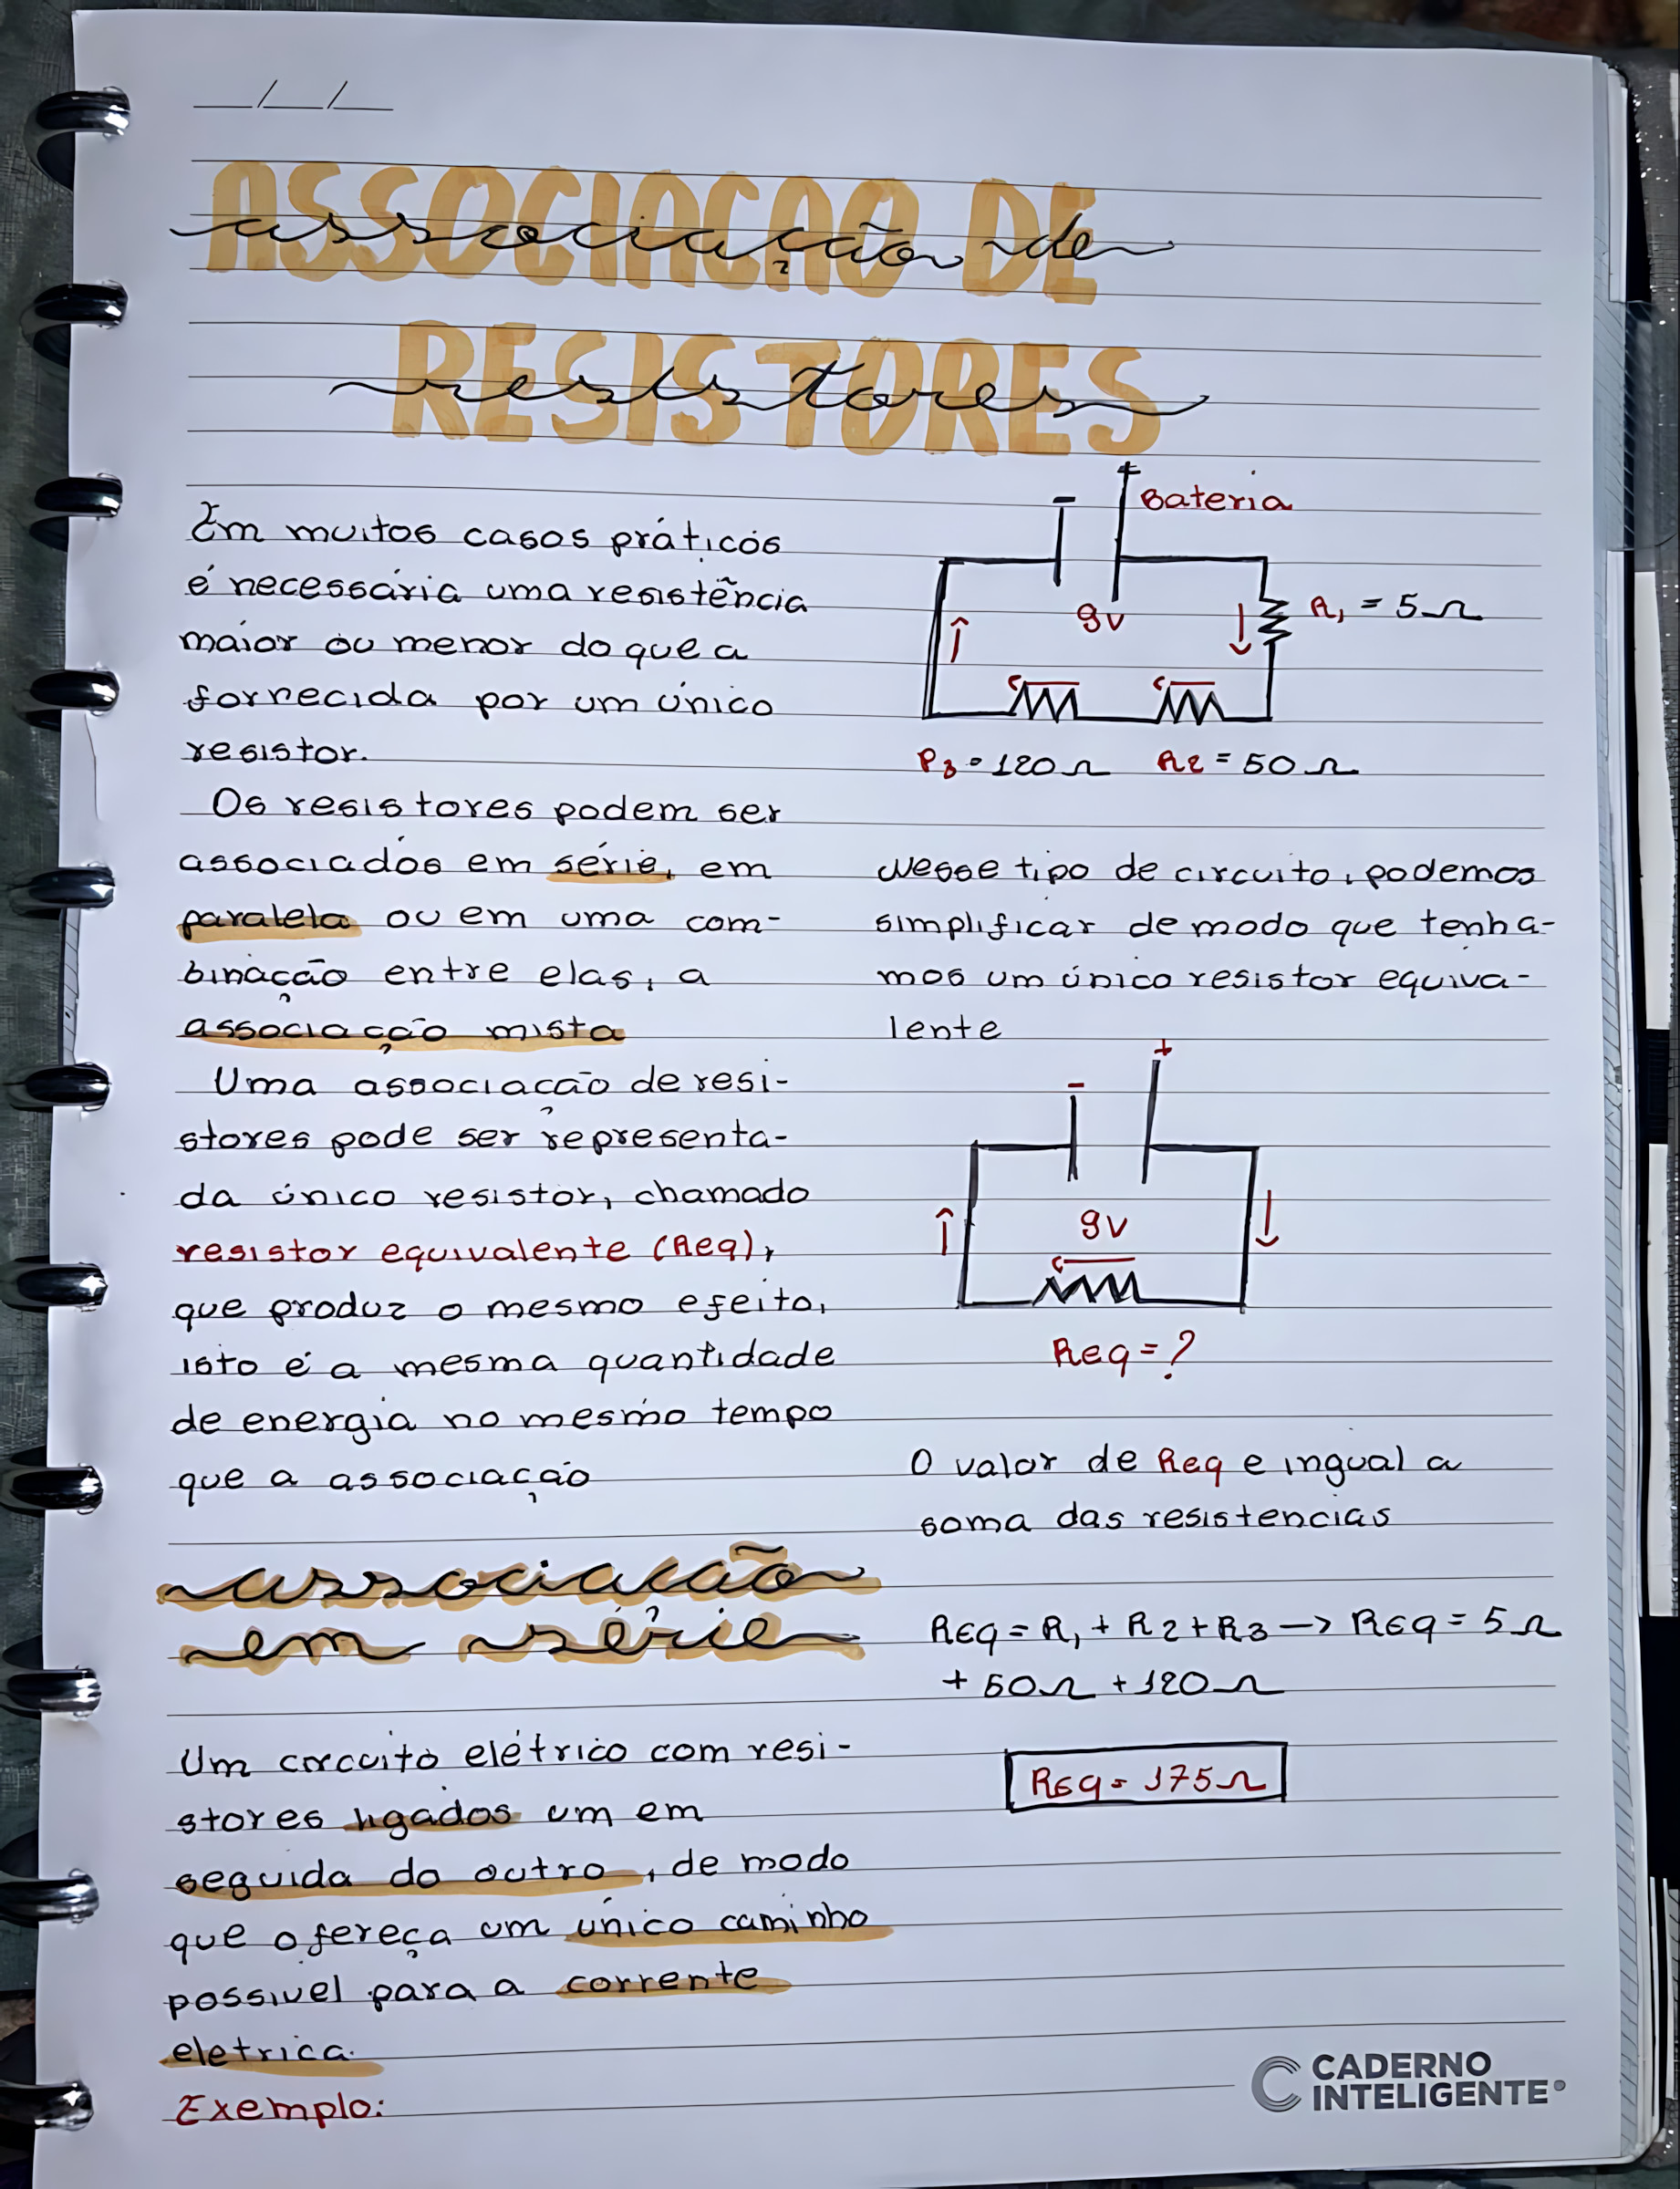 __/__/__
ASSOCIAÇÃO DE
associação de
RESISTORES
resistores
Em muitos casos práticos
é necessária uma resistência
maior ou menor do que a
fornecida por um único
resistor.
Os resistores podem ser
associados em série, em
paralela ou em uma com-
binação entre elas, a
associação mista
Uma associação de resi-
stores pode ser representa-
da único resistor, chamado
resistor equivalente (Req),
que produz o mesmo efeito,
isto é a mesma quantidade
de energia no mesmo tempo
que a associação
associação
em série
Um circuito elétrico com resi-
stores ligados um em
seguida do outro, de modo
que ofereça um único caminho
possivel para a corrente
eletrica.
Exemplo:
- + Bateria
9V
R1 = 5Ω
R3 = 120Ω R2 = 50Ω
Nesse tipo de circuito, podemos
simplificar de modo que tenha-
mos um único resistor equiva-
lente
- +
9V
Req = ?
O valor de Req e ingual a
soma das resistencias
Req = R1 + R2 + R3 → Req = 5Ω
+ 50Ω + 120Ω
Req = 175Ω
CADERNO
INTELIGENTE®